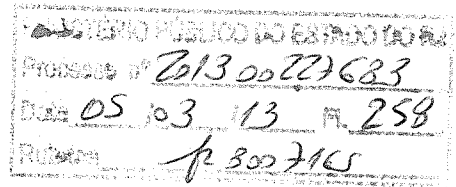 MINISTÉRIO PÚBLICO DO ESTADO DO RJ
Processo nº 201300227683
Data 05 /03 /13 Fl. 258
Rubrica